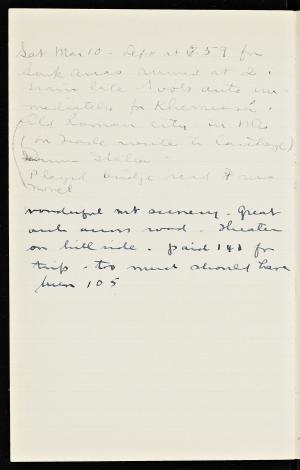 Sat Mar 10 - Left at 8.59 for
Souk Aras arrived at 2.
train late Took auto im-
mediately for Khemissa.
Old Roman city in Mts
(on trade route to Carthage)
Played bridge read
novel
wonderful mt scenery. Great
arch across road. Theater
on hill side. paid 141 for
trip - too much should have
been 105